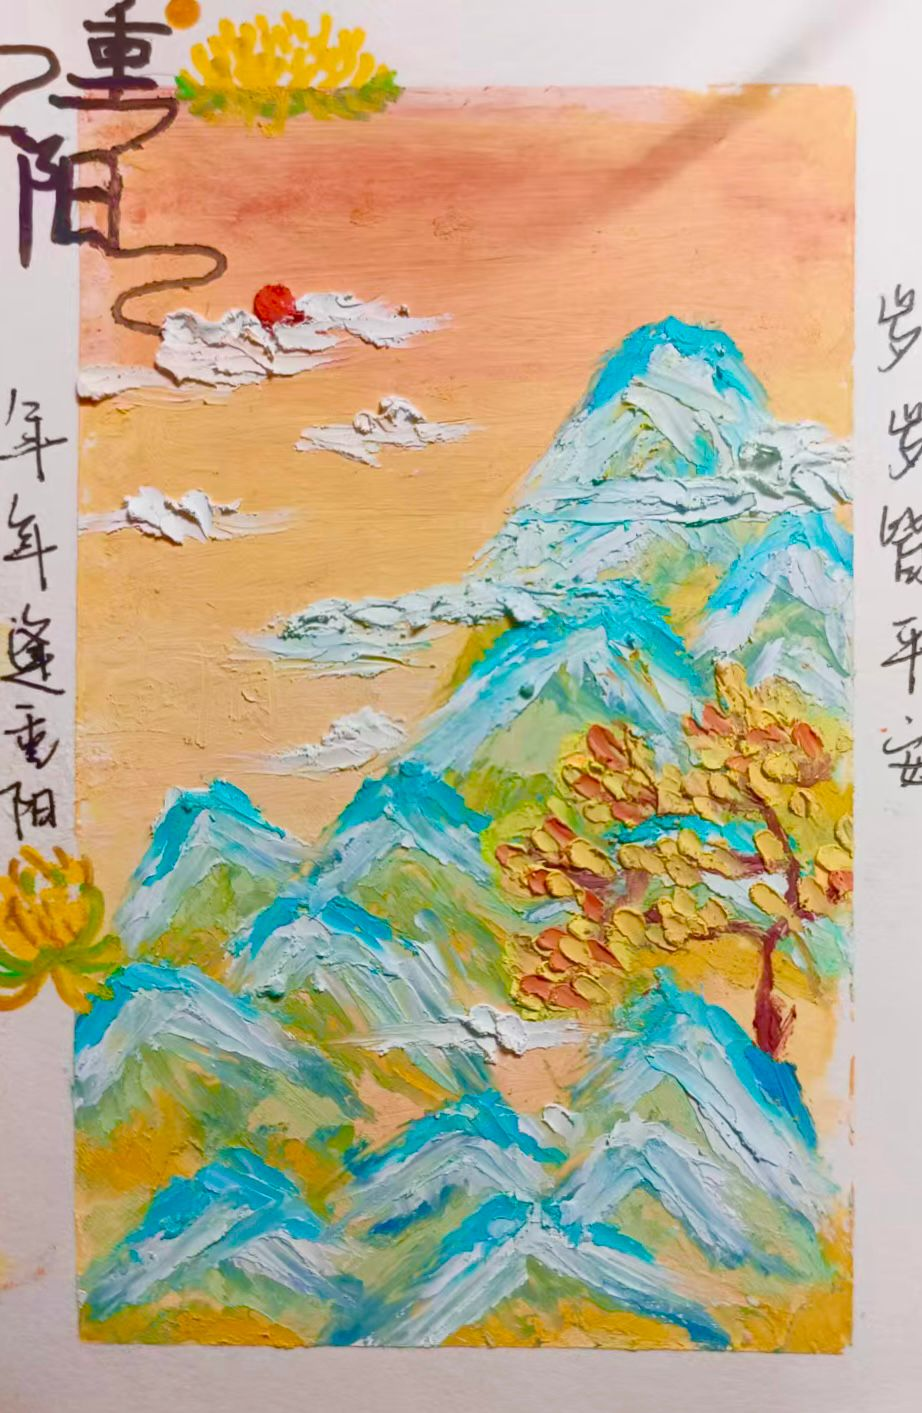 重阳
年年逢重阳
岁岁皆平安